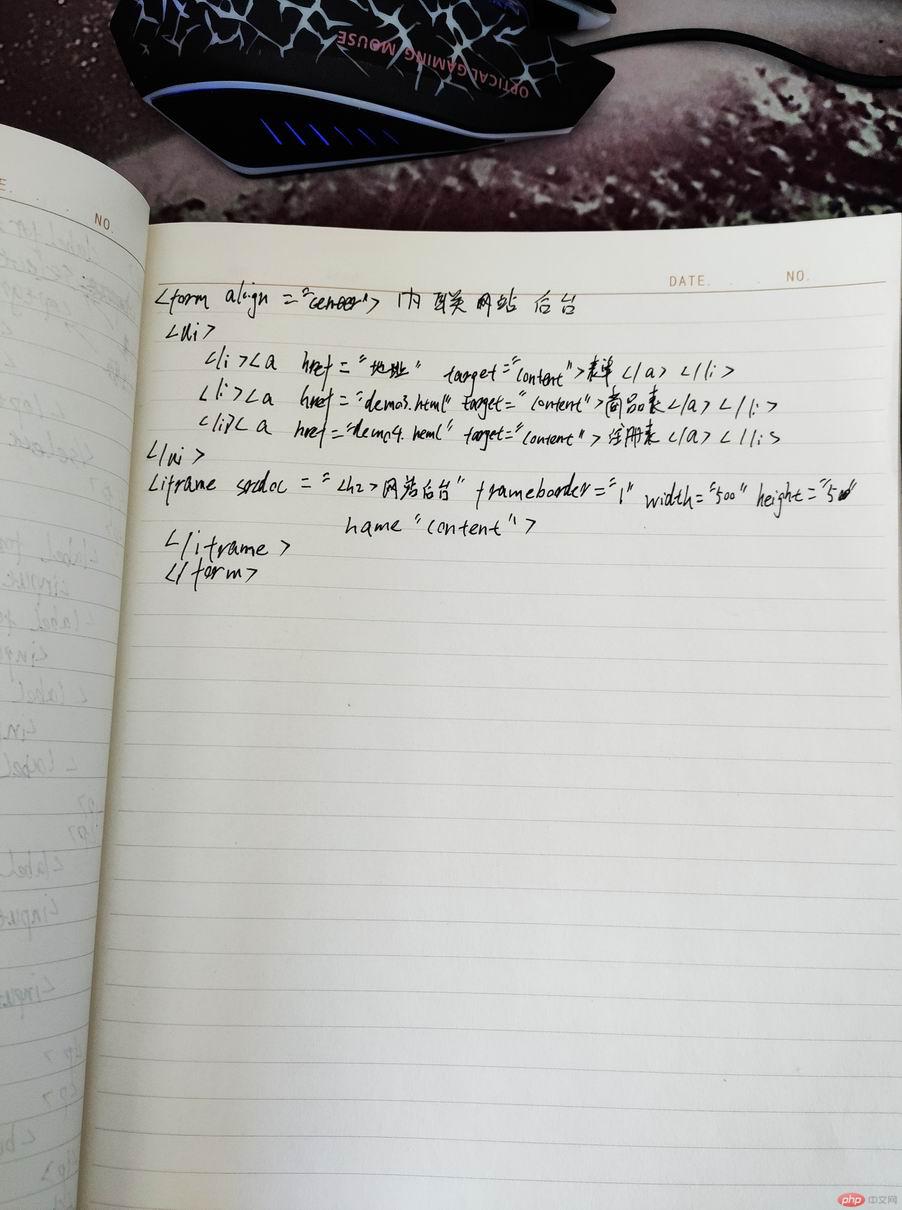 OPTICAL GAMING MOUSE
E.
NO.
DATE. NO.
<form align="center"> 内联网站后台
<ui>
<li><a href="地址" target="content">表单</a></li>
<li><a href="demo3.html" target="content">商品表</a></li>
<li><a href="demo4.heml" target="content">注册表</a></li>
</ui>
<iframe srcdoc="<h2>网站后台" frameborder="1" width="500" height="500"
name "content">
</iframe>
</form>
php 中文网